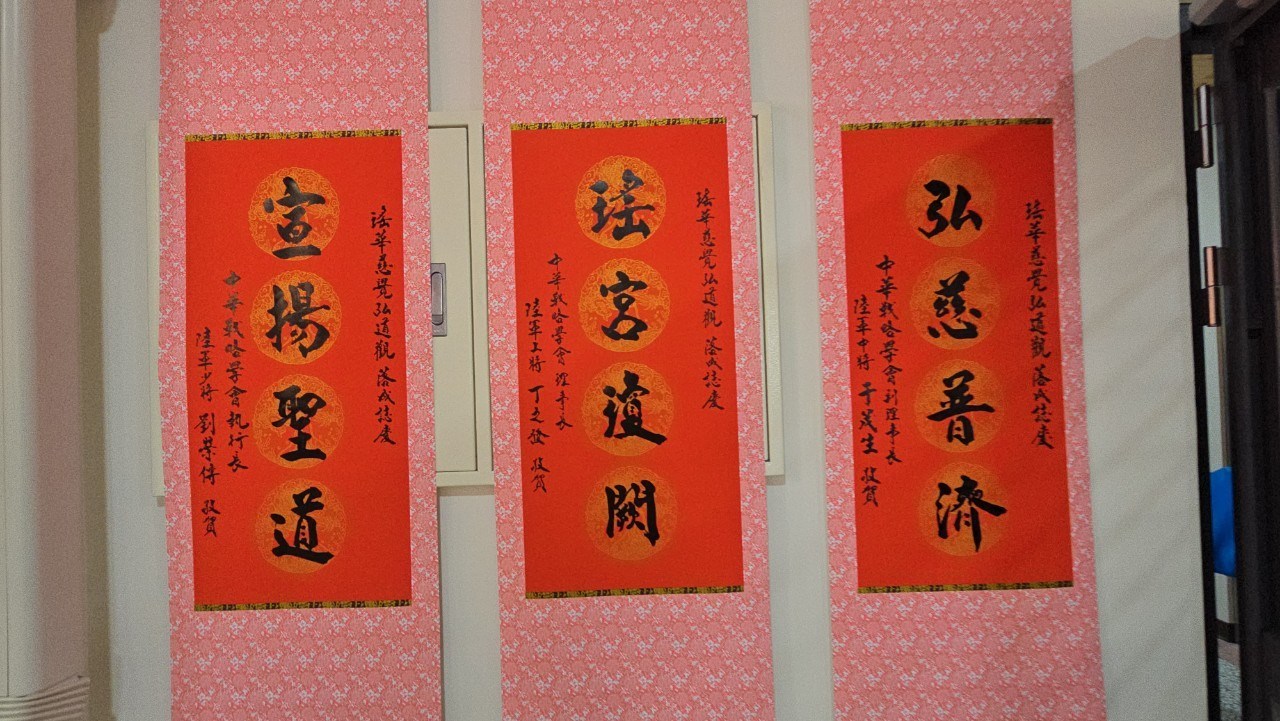 瑤華慈覺弘道觀 落成誌慶
弘慈普濟
中華戰略學會副理事長
陸軍中將 于茂生 敬賀
瑤華慈覺弘道觀 落成誌慶
瑤宮瓊闕
中華戰略學會理事長
陸軍上將 丁之發 敬賀
瑤華慈覺弘道觀 落成誌慶
宣揚聖道
中華戰略學會執行長
陸軍少將 劉榮傳 敬賀